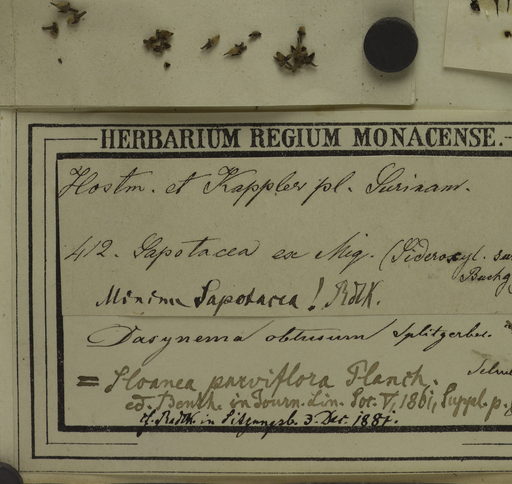 HERBARIUM REGIUM MONACENSE.
Hostm. et Kappler pl. Surinam.
412. Sapotacea ex Miq. (Sideroxyl.
Minime Sapotacea! Rdlk.
Dasynema obtusum Splitgerber.
= Sloanea parviflora Planch.
ed. Benth. in Journ. Lin. Soc. V, 1861, Suppl. p.
cf. Radlk. in Sitzungsb. 3. Dec. 1881.